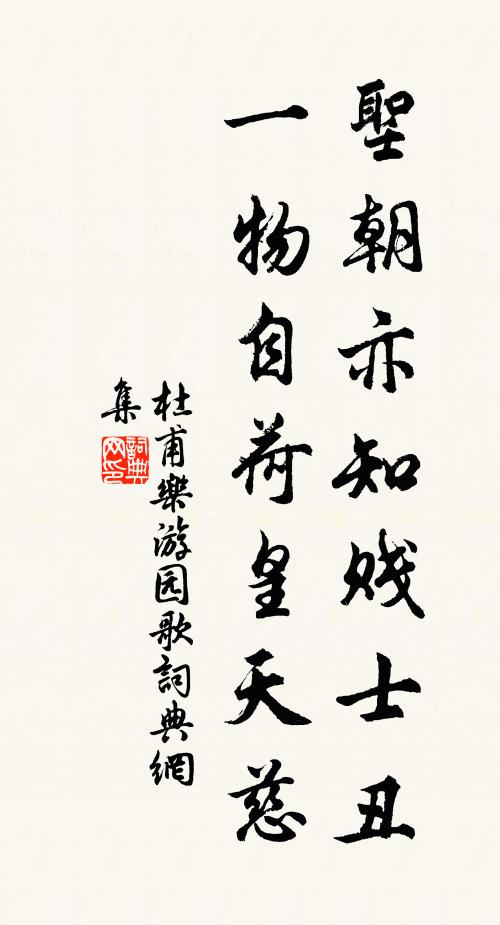 聖朝亦知贱士丑
一物自荷皇天慈
杜甫樂游园歌詞典網
集
詞典
网印